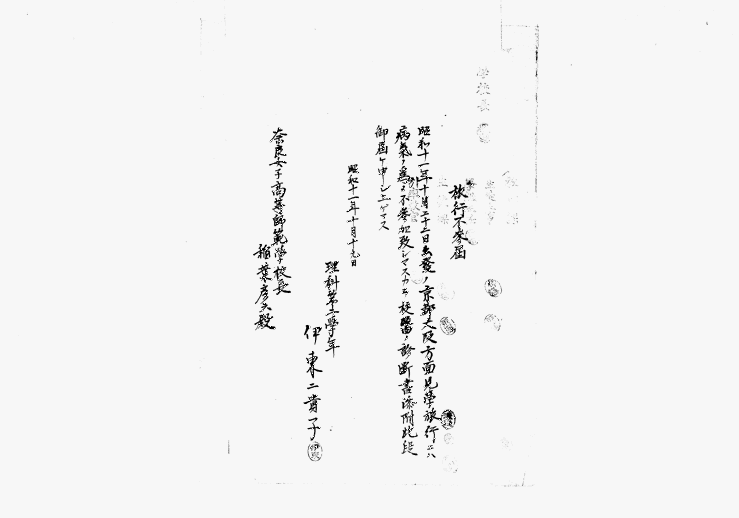 學校長
旅行不參届
昭和十一年十月二十二日出發ノ京都大阪方面見學旅行ニハ
病氣ノ爲メ不參加致シマスカラ校醫ノ診斷書添附此段
御届ケ申シ上ゲマス
昭和十一年十月十九日
理科第二學年
伊東二貴子
奈良女子高等師範學校長
稲葉彦六殿